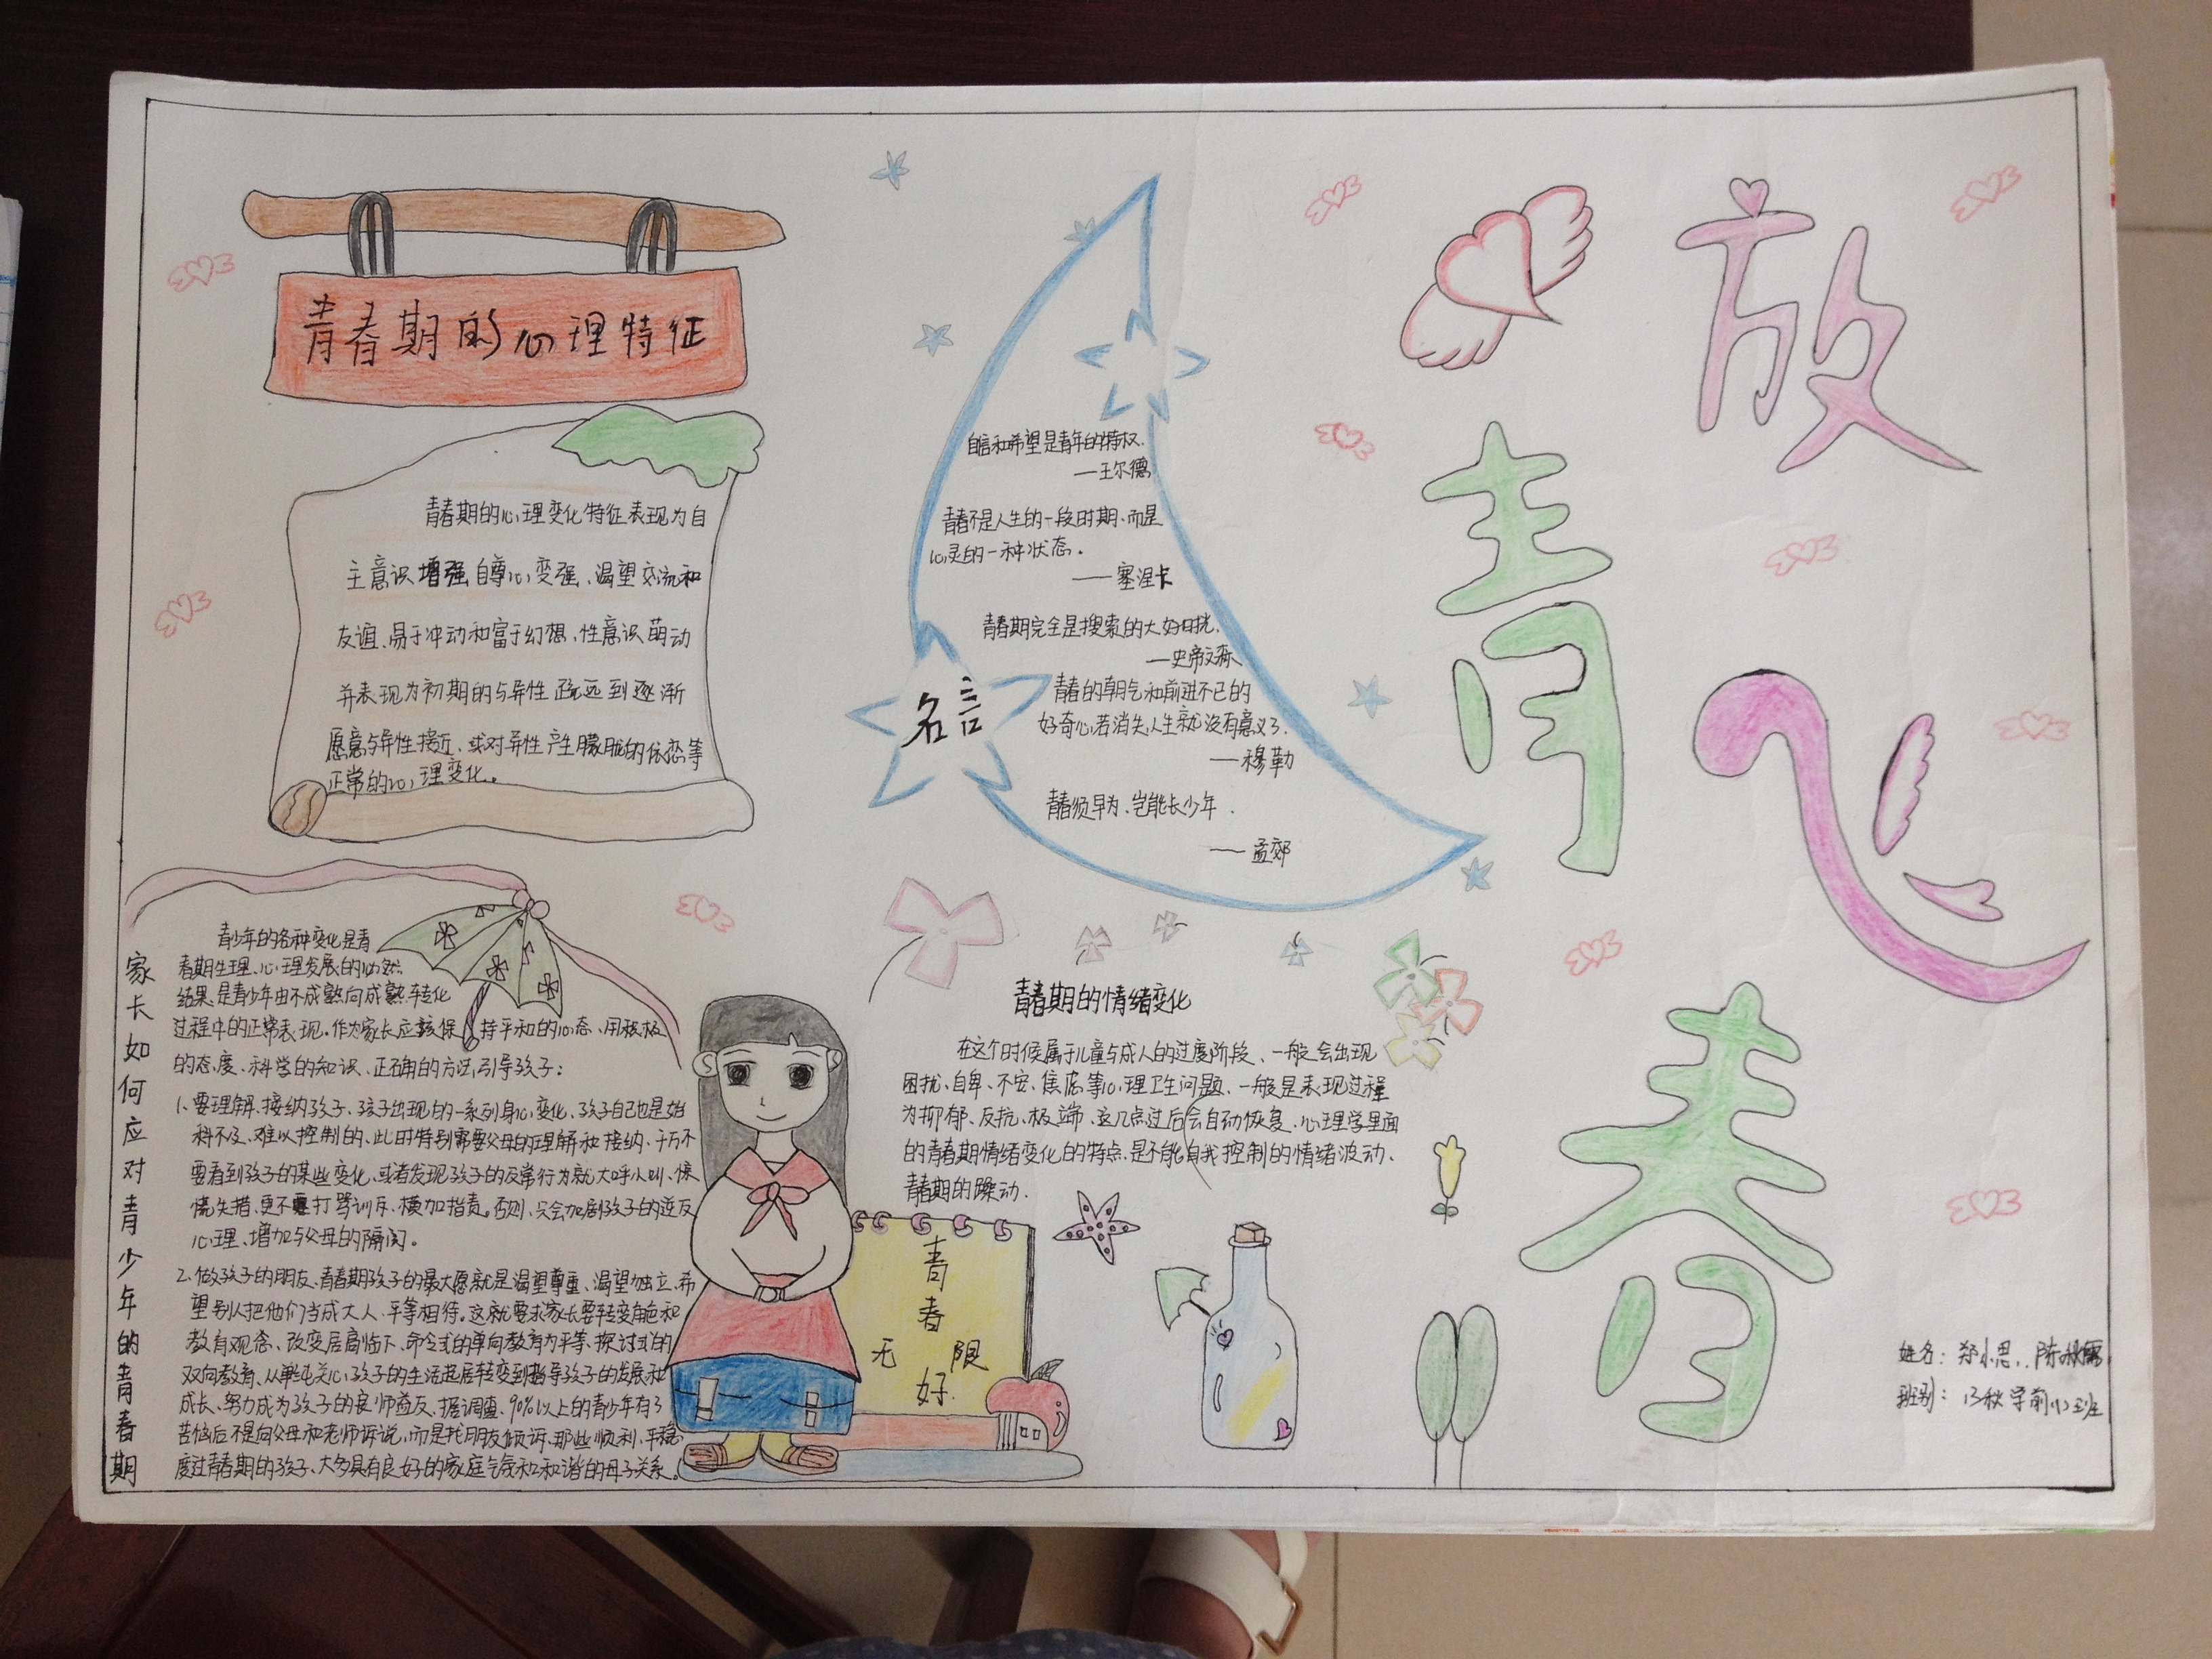 放飞
青春
青春期的心理特征
青春期的心理变化特征表现为自
主意识增强、自尊心变强、渴望交流和
友谊、易于冲动和富于幻想、性意识萌动
并表现为初期的与异性疏远到逐渐
愿意与异性接近、或对异性产生朦胧的依恋等
正常的心理变化。
名言
自信和希望是青年的特权.
—王尔德
青春不是人生的一段时期、而是
心灵的一种状态.
——塞涅卡
青春期完全是搜索的大好时光.
—史帝文森
青春的朝气和前进不已的
好奇心,若消失,人生就没有意义了.
—穆勒
青春须早为、岂能长少年.
——孟郊
家长如何应对青少年的青春期
青少年的各种变化是青
春期生理、心理发展的必然
结果、是青少年由不成熟向成熟转化
过程中的正常表现.作为家长应该保持平和的心态、用积极
的态度、科学的知识、正确的方法,引导孩子:
1、要理解、接纳孩子、孩子出现的一系列身心变化、孩子自己也是始
料不及、难以控制的、此时特别需要父母的理解和接纳、千万不
要看到孩子的某些变化、或者发现孩子的反常行为就大呼小叫、惊
慌失措、更不要打骂训斥、横加指责。否则、只会加剧孩子的逆反
心理、增加与父母的隔阂。
2.做孩子的朋友、青春期孩子的最大愿就是渴望尊重、渴望独立、希
望别人把他们当成大人、平等相待。这就要求家长要转变角色和
教育观念、改变居高临下、命令式的单向教育为平等、探讨式的
双向教育、从单纯关心孩子的生活起居转变到指导孩子的发展和
成长、努力成为孩子的良师益友、据调查、90%以上的青少年有了
苦恼后不是向父母和老师诉说,而是找朋友倾诉.那些顺利、平稳
度过青春期的孩子、大多具有良好的家庭气氛和和谐的母子关系。
青春期的情绪变化
在这个时候属于儿童与成人的过度阶段、一般会出现
困扰、自卑、不安、焦虑等心理卫生问题、一般是表现过程
为抑郁、反抗、极端、这几点过后会自动恢复、心理学里面
的青春期情绪变化的特点、是不能自我控制的情绪波动、
青春期的躁动.
青春
无限
好.
姓名: 郑小思、陈秋
班别: 13秋学前(1)班